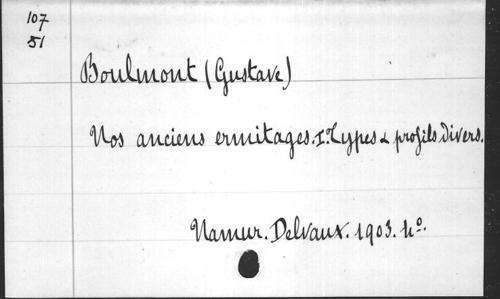 107
51
Boulmont (Gustave)
Nos anciens ermitages. I. Types & profils divers.
Namur. Delvaux. 1903. 4º.